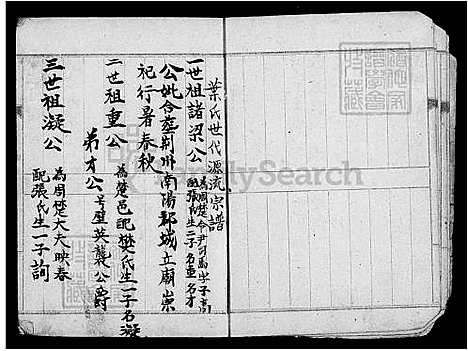 葉氏世代源流宗譜
一世祖諸梁公
為周楚令尹司馬字子高
配張氏生二子名重名才
公妣合葬荆州南陽郡城立廟崇
祀行暑春秋
二世祖重公
為楚邑配樊氏生一子名凝
弟才公
號英襲公爵
三世祖凝公
為周楚大夫映春
配張氏生一子詢
FamilySearch